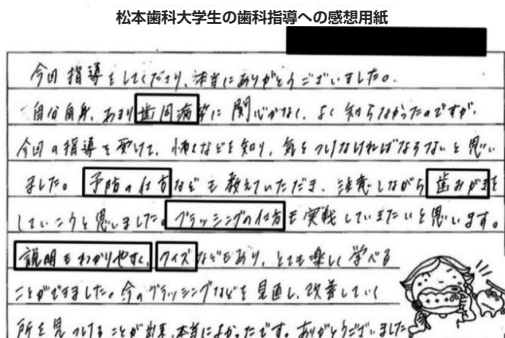 松本歯科大学生の歯科指導への感想用紙
今回指導をしてくださり、本当にありがとうございました。
自分自身、あまり歯周病等に関心がなく、よく知らなかったのですが、
今回の指導を受けて、怖さなどを知り、気をつけなければならないと思い
ました。予防の仕方なども教えていただき、注意しながら歯みがきを
していこうと思いました。ブラッシングの仕方も実践していきたいと思います。
説明もわかりやすく、クイズなどもあり、とても楽しく学べる
ことができました。今のブラッシングなどを見直し、改善していく
所を見つけることが出来、本当によかったです。ありがとうございました